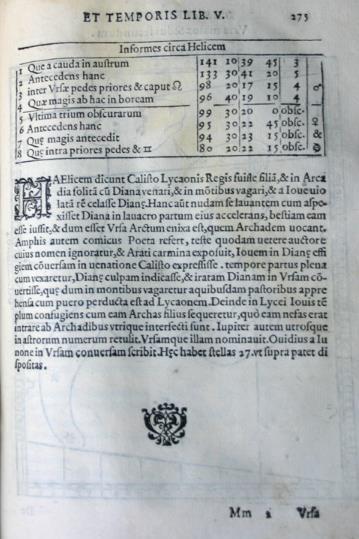 ET TEMPORIS LIB. V. 275
Informes circa Helicem
1 Que a cauda in austrum 141 10 39 45 3
2 Antecedens hanc 133 30 41 20 5
3 inter Vrsæ pedes priores & caput ♌ 98 20 17 15 4 ♂
4 Quæ magis ab hac in boream 96 40 19 10 4
5 Vltima trium obscurarum 99 30 20 0 obsc.
6 Antecedens hanc 95 30 22 45 obsc. ♀
7 Quę magis antecedit 94 30 23 15 obsc. &
8 Quę intra priores pedes & ♊ 80 20 22 15 obsc.
HAElicem dicunt Calisto Lycaonis Regis fuisse filiã, & in Arca
dia solitã cũ Diana venari, & in mõtibus vagari, & a Ioue uio
latã rē celasse Dianę. Hanc aũt nudam se lauantem cum aspe-
xisset Diana in lauacro partum eius accelerans, bestiam eam
esse iussit, & dum esset Vrsa Arctum enixa est, quem Archadem uocant.
Amphis autem comicus Poeta refert, teste quodam uerere auctore
cuius nomen ignoratur, & Arati carmina exposuit, Iouem in Dianę effi
giem cõuersam in uenatione Calisto expressisse. tempore partus plena
cum vexaretur, Dianę culpam indicasse, & iratam Dianam in Vrsam cõ-
uertisse, quę dum in montibus vagaretur a quibusdam pastoribus appre
hensa cum puero perducta est ad Lycaonem. Deinde in Lycei Iouis tē
plum confugiens cum eam Archas filius sequeretur, quò eam nefas erat
intrare ab Archadibus vtrique interfecti sunt. Iupiter autem utrosque
in astrorum numerum retulit. Vrsamque illam nominauit. Ouidius a Iu
none in Vrsam conuersam scribit. Hęc habet stellas 27. vt supra patet di
spositas.
Mm 2 Vrsa